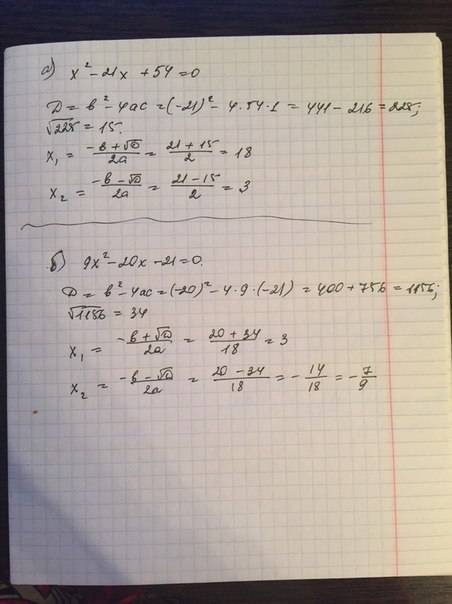 а) x² - 21x + 54 = 0
D = b² - 4ac = (-21)² - 4·54·1 = 441 - 216 = 225;
√225 = 15.
x₁ = (-b + √D)/2a = (21 + 15)/2 = 18
x₂ = (-b - √D)/2a = (21 - 15)/2 = 3
б) 9x² - 20x - 21 = 0.
D = b² - 4ac = (-20)² - 4·9·(-21) = 400 + 756 = 1156;
√1156 = 34
x₁ = (-b + √D)/2a = (20 + 34)/18 = 3
x₂ = (-b - √D)/2a = (20 - 34)/18 = -14/18 = -7/9